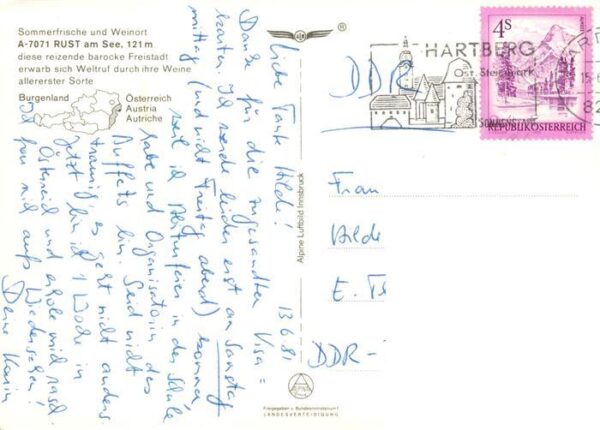 Sommerfrische und Weinort
A-7071 RUST am See, 121 m
diese reizende barocke Freistadt
erwarb sich Weltruf durch ihre Weine
allererster Sorte
Burgenland
Österreich
Austria
Autriche
13.6.81
Liebe Tante Hilde!
Danke für die zugesandten Visa=
karten. Ich werde leider erst am Samstag
mittag (und nicht Freitag abend) kommen
weil ich Abiturfeier in der Schule
habe und Organisatorin des
Buffets bin. Seid nicht
traurig, es geht nicht anders
Jetzt bin ich 1 Woche in
Österreich und erhole mich
freu mich aufs Wiedersehen!
Deine Karin
Alpine Luftbild Innsbruck
Freigegeben v. Bundesministerium f.
LANDESVERTEIDIGUNG
HARTBERG
Ost-Steiermark
SONNENSTADT
4S
REPUBLIK ÖSTERREICH
DDR
Frau
Hilde
E.
DDR-